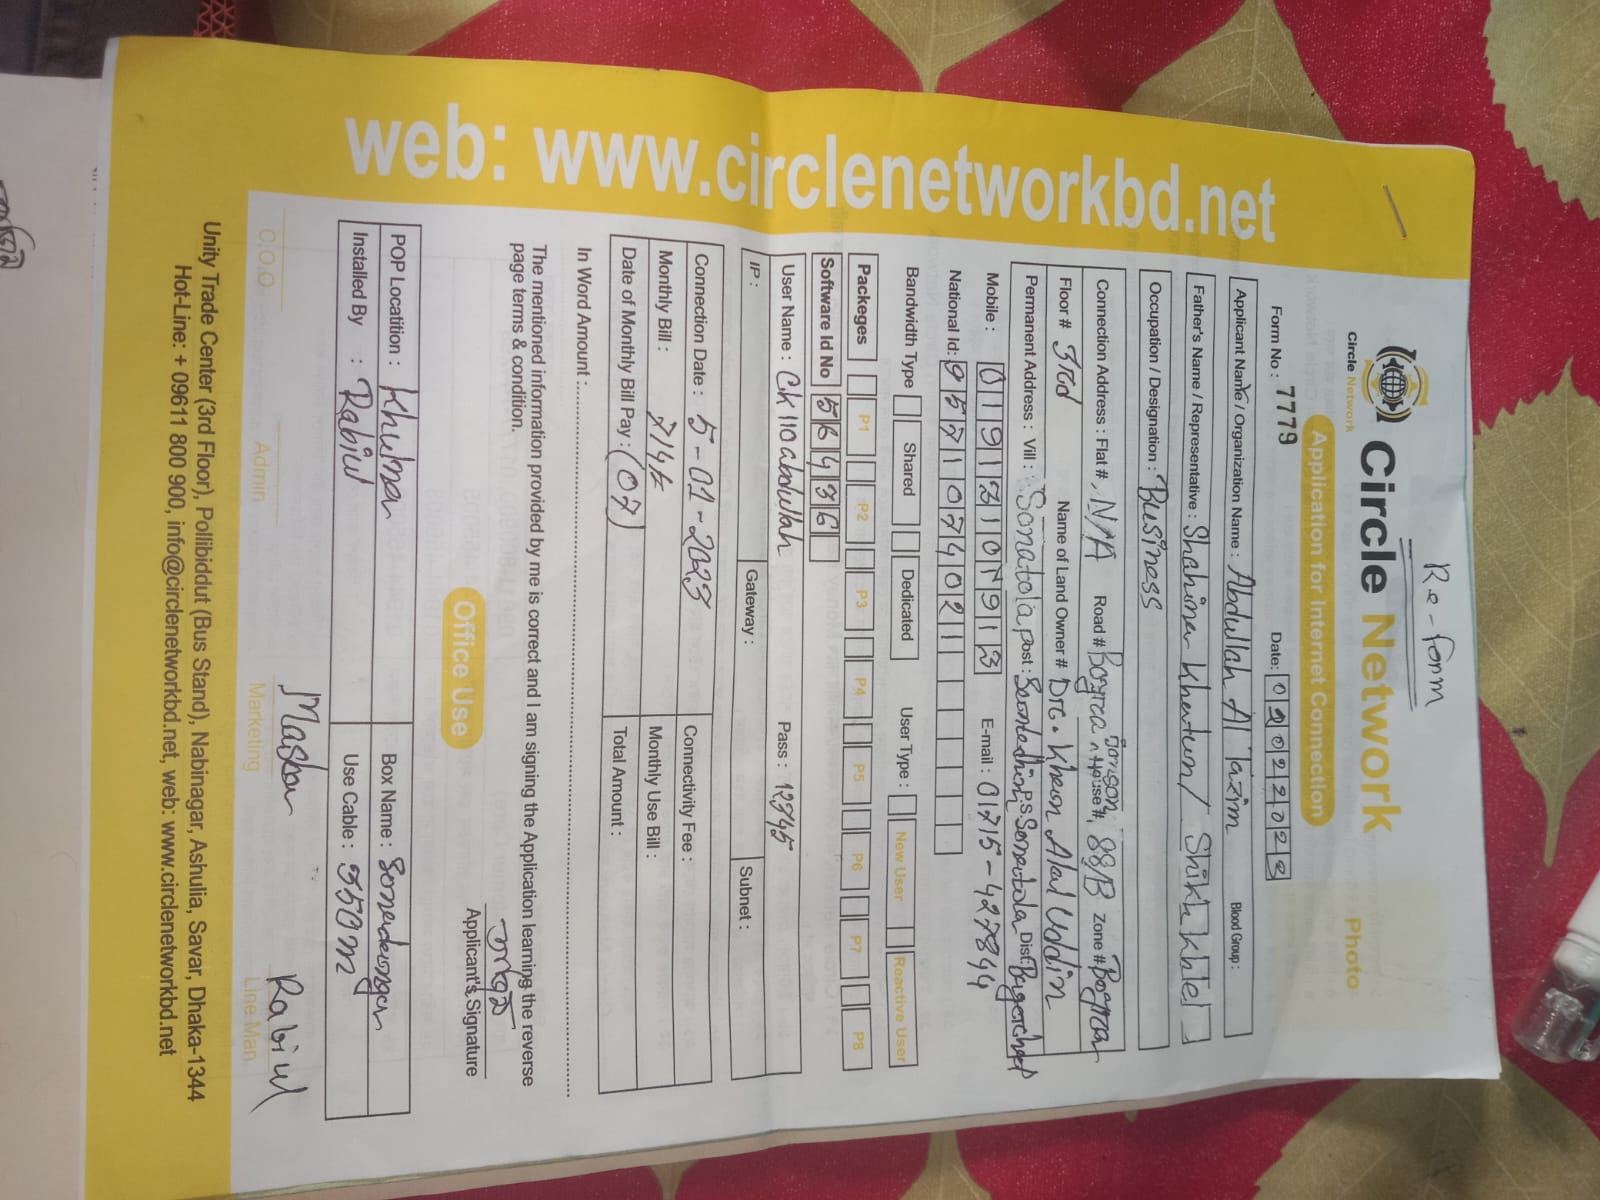 Re-form
Circle Network
Circle Network
Photo
Application for Internet Connection
Form No : 7779 Date: 02022023
Applicant Name / Organization Name : Abdullah Al Tazim Blood Group :
Father's Name / Representative : Shahina Khatun / Shikh Khalel
Occupation / Designation : Business
Connection Address : Flat # N/A Road # House # 88/B Zone #
Floor # 3rd Name of Land Owner # Khan Alal Uddin
Permanent Address : Vill : Sonatola Post : P.S Sonatola Dist:
Mobile : E-mail : 01715-427844
National Id: 9571074021
Bandwidth Type Shared Dedicated User Type : New User Reactive User
Packeges P1 P2 P3 P4 P5 P6 P7 P8
Software Id No
User Name : Ck110abdullah Pass : 12345
IP : Gateway : Subnet :
Connection Date : 5-01-2023 Connectivity Fee :
Monthly Bill : Monthly Use Bill :
Date of Monthly Bill Pay : (07) Total Amount :
In Word Amount :
The mentioned information provided by me is correct and I am signing the Application learning the reverse
page terms & condition.
Applicant's Signature
Office Use
POP Locatition : Khulna Box Name :
Installed By : Rabiul Use Cable : 350m
Rabiul
C.O.O Admin Marketing Line Man
Unity Trade Center (3rd Floor), Pollibiddut (Bus Stand), Nabinagar, Ashulia, Savar, Dhaka-1344
Hot-Line: + 09611 800 900, info@circlenetworkbd.net, web: www.circlenetworkbd.net
web: www.circlenetworkbd.net